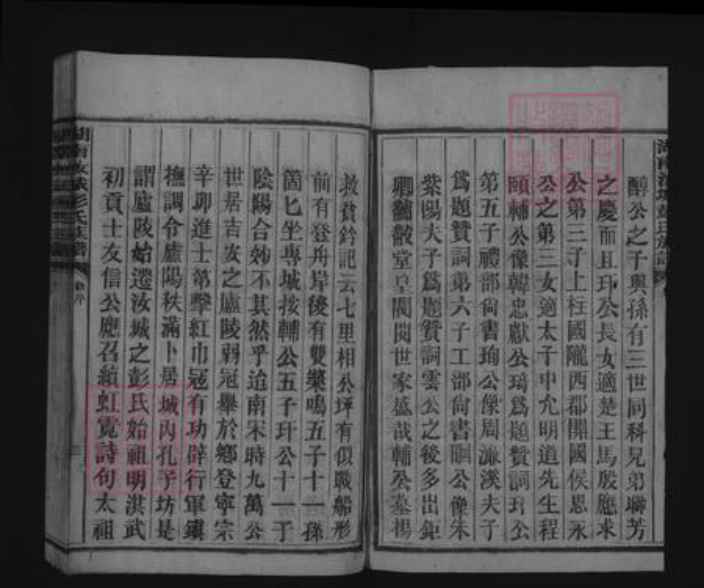 醇公之子與孫有三世同科兄弟聯芳
之慶而且玕公長女適楚王馬殷應求
公第三子上柱國隴西郡開國侯思永
公之第三女適太子中允明道先生程
頤輔公像韓忠獻公琦爲題贊詞玕公
第五子禮部尚書瑜公像周濂溪夫子
爲題贊詞第六子工部尚書公像朱
紫陽夫子爲題贊詞雲公之後多出鉅
卿黼黻堂皇閥閱世家盛哉輔公墓楊
救貧鈐記云七里相公坪有似戰船形
前有登舟岸後有雙樂鳴五子十一孫
箇匕坐專城按輔公五子玕公十一子
陰陽合妙不其然乎迨南宋時九萬公
世居吉安之廬陵弱冠舉於鄉登寧宗
辛卯進士第擊紅巾冦有功辟行軍鎭
撫調令廬陽秩滿卜居城內孔子坊是
謂廬陵始遷汝城之彭氏始祖明洪武
初貢士友信公應召続虹霓詩句太祖
湖南汝城彭氏族譜